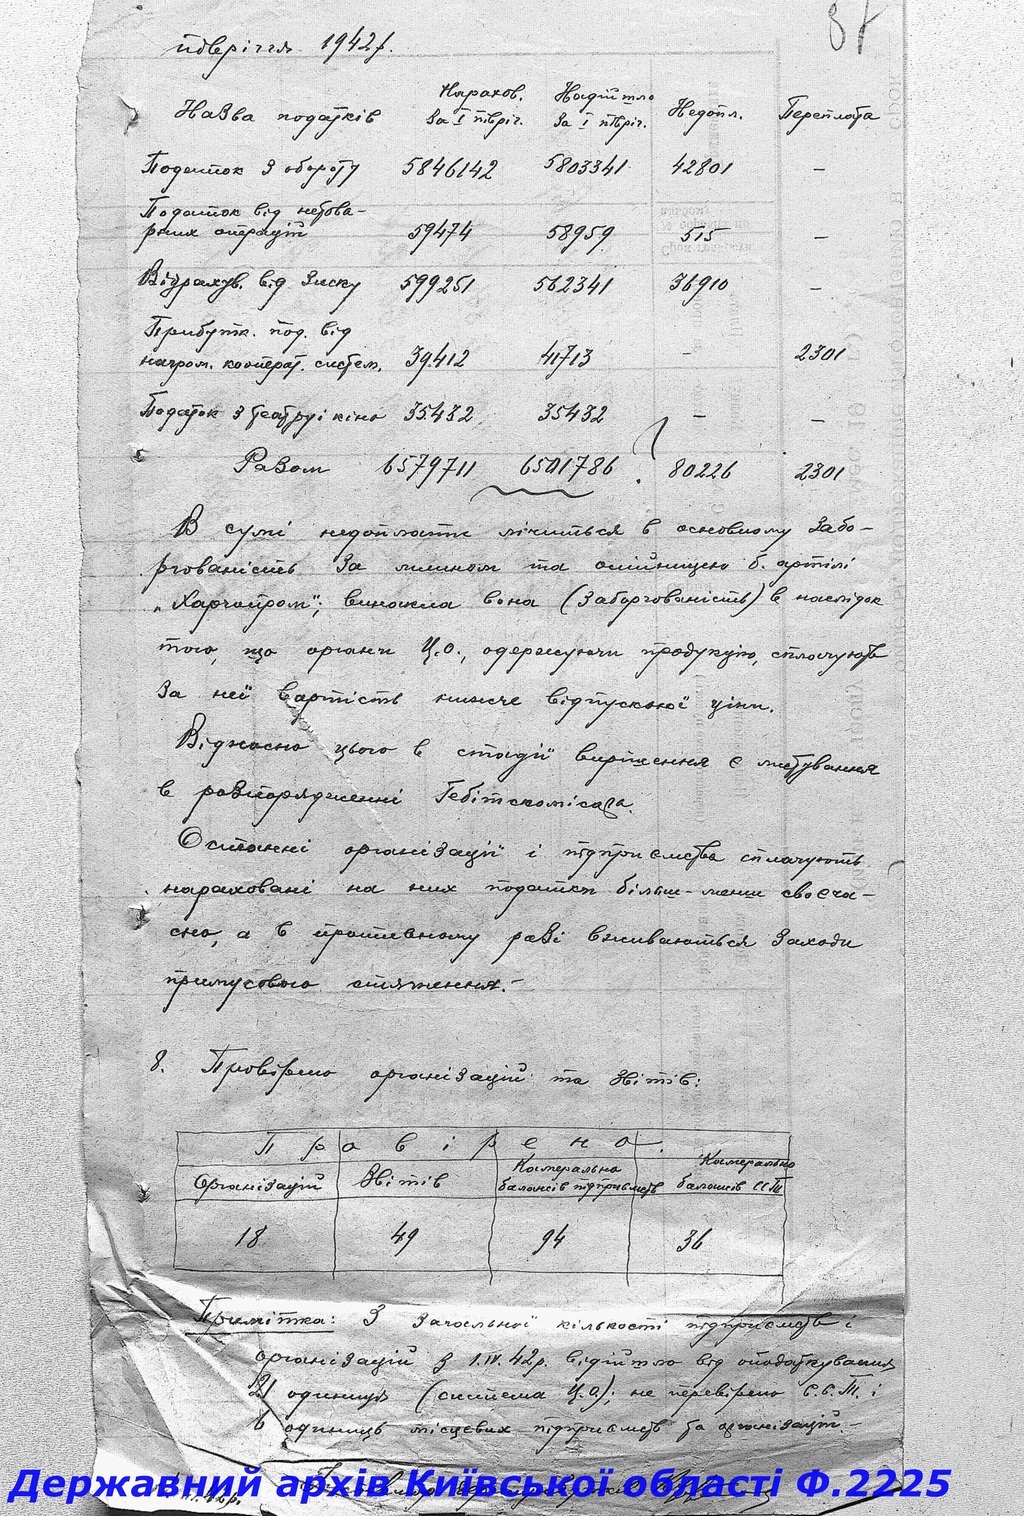 87
півріччя 1942р.
Назва податків Нарахов. за І півріч. Надійшло за І півріч. Недопл. Переплата
Податок з обороту 5846142 5803341 42801 –
Податок від нетова-
рних операцій 59474 58959 515 –
Відрахув. від зиску 599251 562341 36910 –
Прибутк. под. від
нагром. кооперат. систем. 39412 41713 – 2301
Податок з театру і кіно 35432 35432 – –
Разом 6579711 6501786 80226 2301
В сумі недоплати лічиться в основному забо-
ргованість за млином та олійницею б. артілі
„Харчопром"; виникла вона (заборгованість) в наслідок
того, що органи Ц.О., одержуючи продукцію, сплачують
за неї вартість нижче відпускної ціни.
Відносно цього в стадії вирішення є листування
в розпорядженні Гебітскомісара.
Останні організації і підприємства сплачують
нараховані на них податки більш-менш своєча-
сно, а в противному разі вживаються заходи
примусового стяження.-
8. Провірено організацій та звітів:
Провірено.
Організацій Звітів Камерально балансів підприємств Камерально балансів ССТ
18 49 94 36
Примітка: З загальної кількості підприємств і
організацій з 1.IV.42р. відійшло від оподаткування
21 одиниця (система Ц.О.); не перевірено С.С.Т. і
6 одиниць місцевих підприємств та організацій.-
42р.
Державний архів Київської області Ф.2225